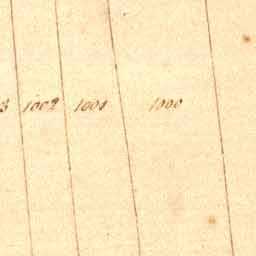 3 1002 1001 1000